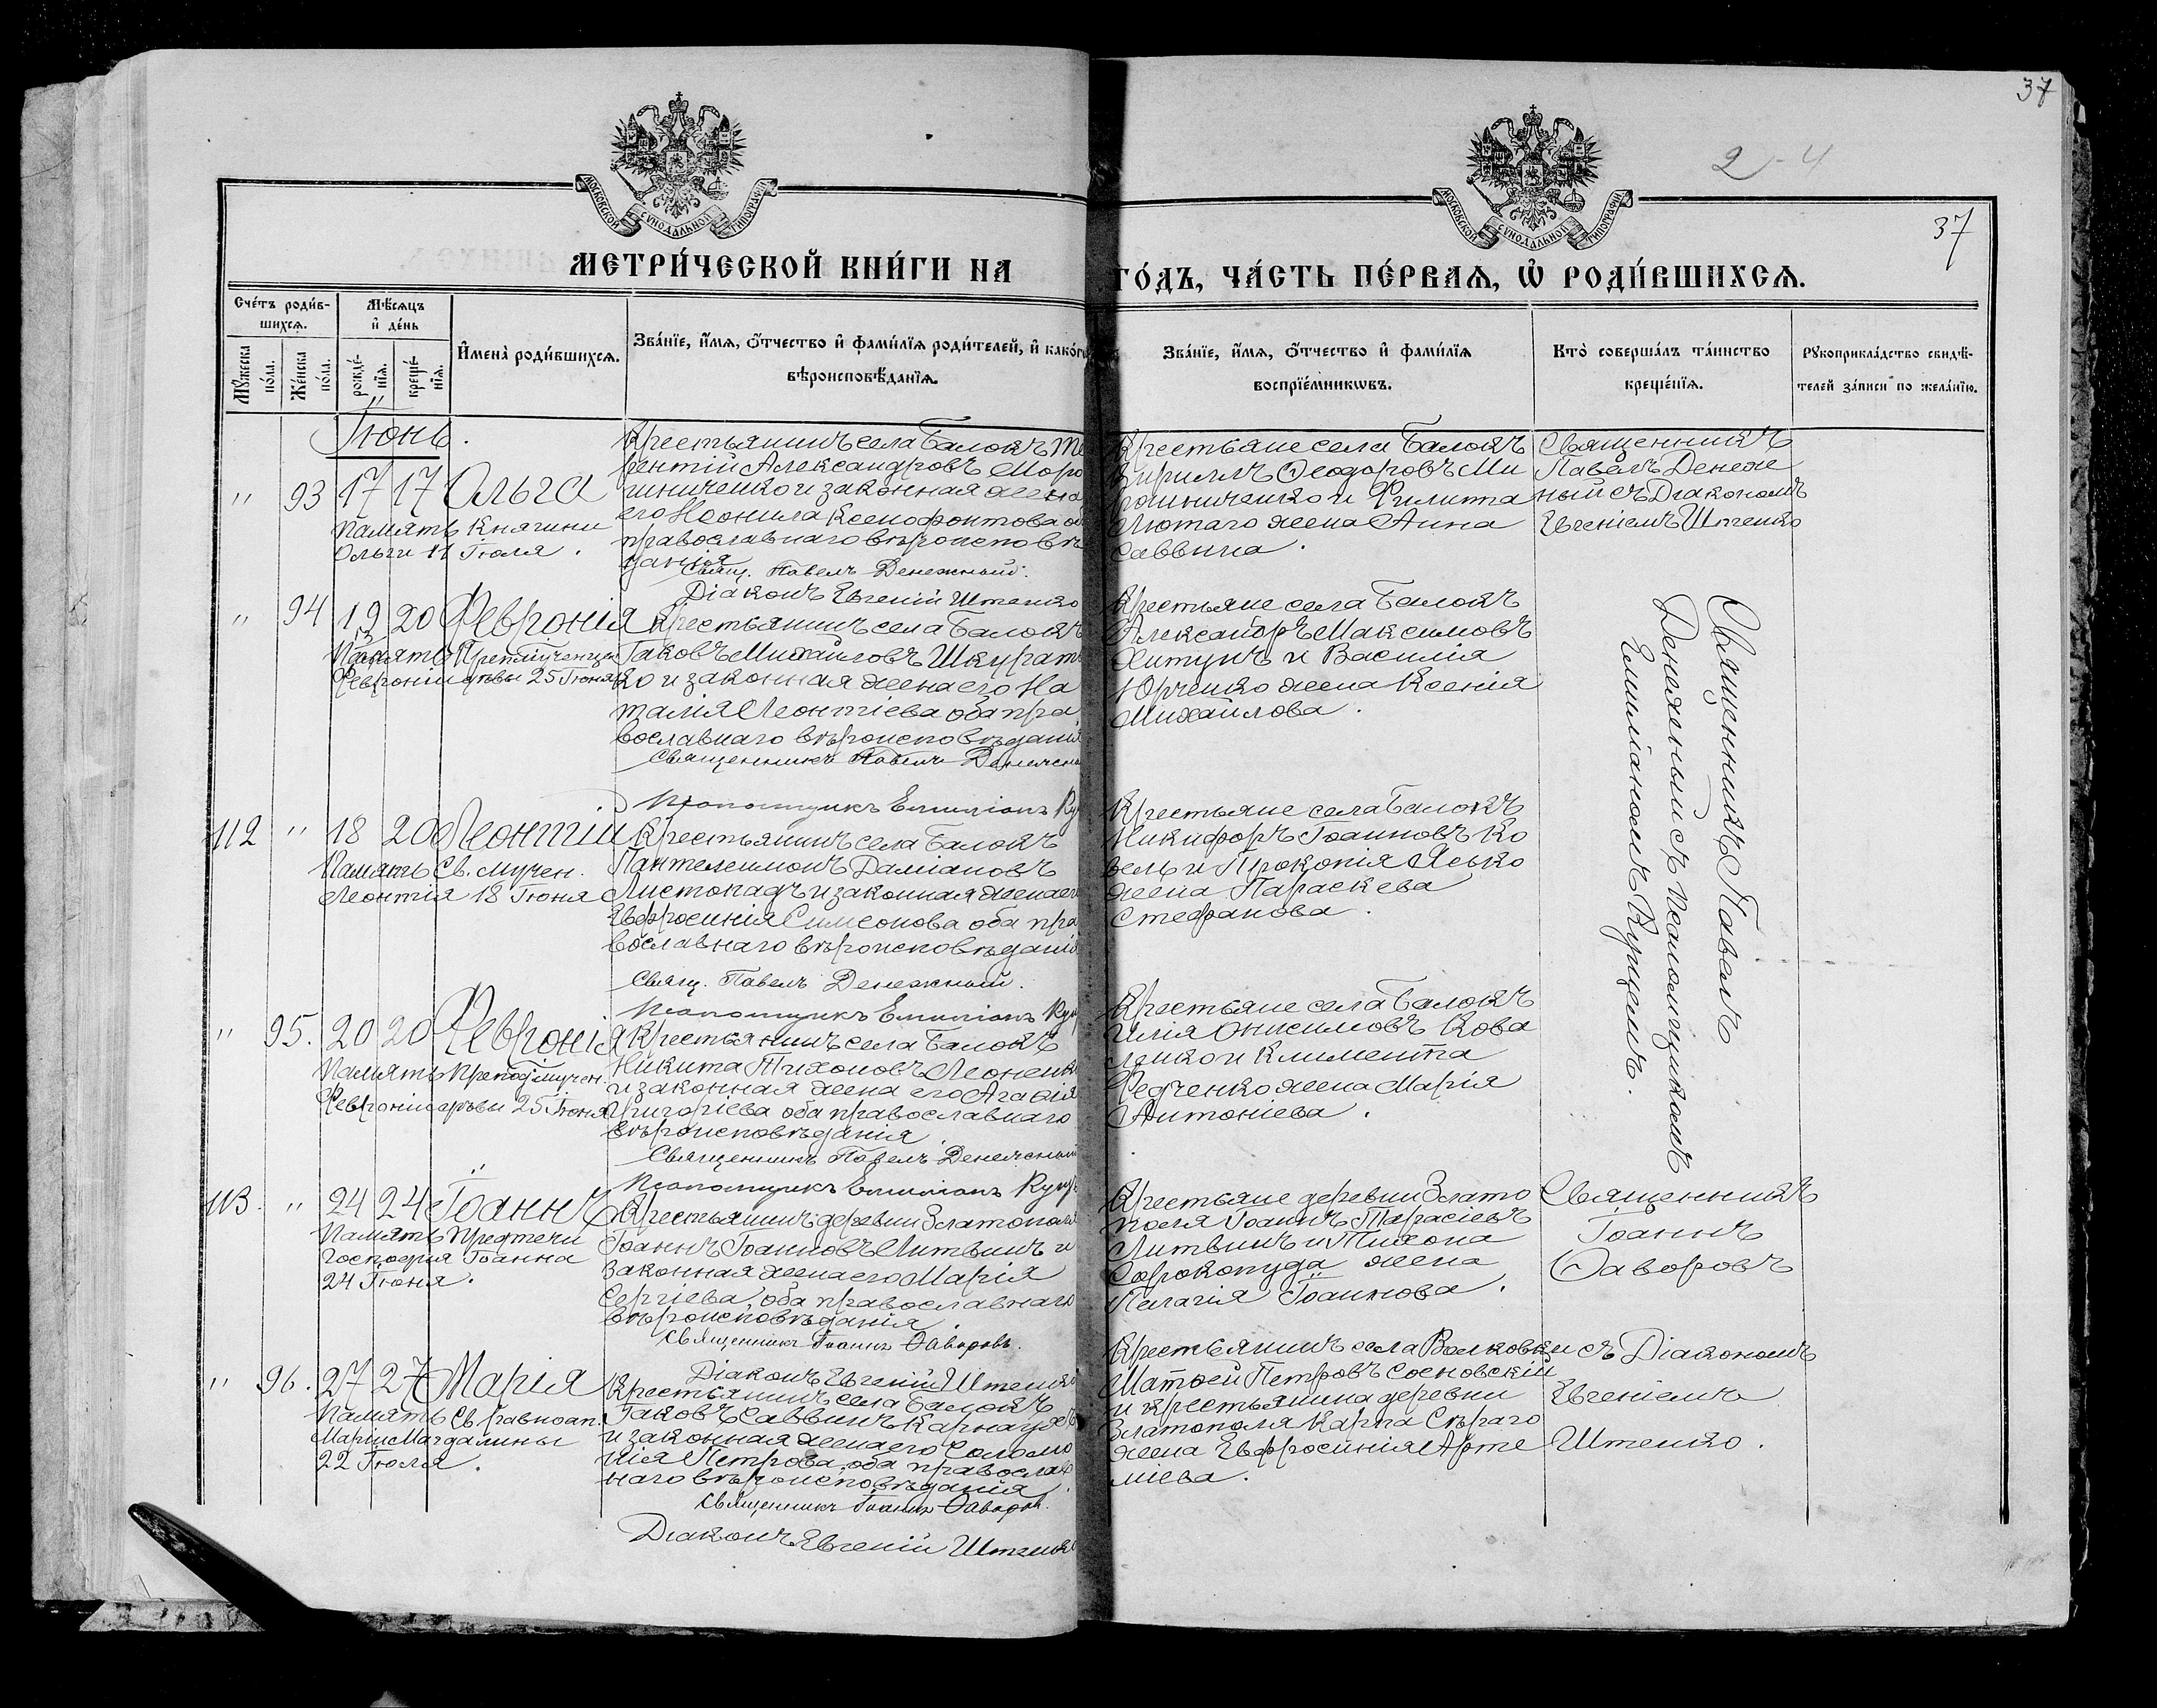 37
2-4
37
МОСКОВСКОЙ СѴНОДАЛЬНОЙ ТИПОГРАФІИ
МОСКОВСКОЙ СѴНОДАЛЬНОЙ ТИПОГРАФІИ
МЕТРИ́ЧЕСКОЙ КНИ́ГИ НА
ГО́ДЪ, ЧА́СТЬ ПЕ́РВАѦ, Ѡ҆ РОДИ́ВШИХСѦ.
Сче́тъ роди́в-
шихсѧ.
Мꙋ́жеска по́ла.
Же́нска по́ла.
Мѣ́сѧцъ
и҆ де́нь
рожде́-
нїѧ.
креще́-
нїѧ.
И҆мена̀ роди́вшихсѧ.
Зва́нїе, и҆́мѧ, ѻ҆́тчество и҆ фами́лїѧ роди́телей, и҆ како́гѡ
вѣроисповѣ́данїѧ.
Зва́нїе, и҆́мѧ, ѻ҆́тчество и҆ фами́лїѧ
воспрїе́мникѡвъ.
Кто̀ соверша́лъ та́инство
креще́нїѧ.
Рꙋкоприкла́дство свидѣ́-
телей за́писи по жела́нїю.
Іюнь.
" 93 17 17 Ольга
Память Княгини
Ольги 11 Іюля.
Крестьянинъ села Балокъ Те
рентій Александровъ Моро
шниченко и законная жена
его Неонила Ксенофонтова об
православнаго вѣроисповѣ
данія
Свящ. Павелъ Денежный.
Діаконъ Евгеній Штепко
Крестьяне села Балокъ
Кириллъ Ѳеодоровъ Ми
рошниченко и Филиппа
Лютаго жена Анна
Саввина.
Священникъ
Павелъ Денеж
ный съ Діакономъ
Евгеніемъ Штепко
" 94 19 20 Февронія
Память Препмученицы
Февроніи дѣвы 25 Іюня
Крестьянинъ села Балокъ
Іаковъ Михайловъ Шкурат
ко и законная жена его На
талія Леонтіева оба пра
вославнаго вѣроисповѣданія
Священникъ Павелъ Денежны
Псаломщикъ Емиліанъ Ку
Крестьяне села Балокъ
Александръ Максимовъ
Хитунъ и Василія
Юрченко жена Ксенія
Михайлова.
Священникъ Павелъ
Денежный съ Псаломщикомъ
Емиліаномъ Куицемъ.
112 " 18 20 Леонтій
Память Св. мучен.
Леонтія 18 Іюня
Крестьянинъ села Балокъ
Пантелеимонъ Даміановъ
Листопадъ и законная жена его
Евфросинія Симеонова оба пра
вославнаго вѣроисповѣданія
Свящ. Павелъ Денежный.
Псаломщикъ Емиліанъ Ку
Крестьяне села Балокъ
Никифоръ Іоанновъ Ко
вель и Прокопія Ясько
жена Параскева
Стефанова.
" 95. 20 20 Февронія
Память Преподмучен.
Февроніи дѣвы 25 Іюня
Крестьянинъ села Балокъ
Никита Тихоновъ Леоненко
и законная жена его Агафія
Григоріева оба православнаго
вѣроисповѣданія.
Священникъ Павелъ Денежный
Псаломщикъ Емиліанъ Ку
Крестьяне села Балокъ
Илія Онисимовъ Кова
ленко и Климента
Федченко жена Марія
Антоніева.
113. " 24 24 Іоаннъ
Память Предтечи
Господня Іоанна
24 Іюня.
Крестьянинъ деревни Златополя
Іоаннъ Іоанновъ Литвинъ и
законная жена его Марія
Сергіева, оба православнаго
вѣроисповѣданія.
Священникъ Іоаннъ Ѳаворовъ.
Діаконъ Евгеній Штепко
Крестьяне деревни Злато
поля Іоаннъ Тарасіевъ
Литвинъ и Тихона
Сорокопуда жена
Пелагія Іоаннова.
Священникъ
Іоаннъ
Ѳаворовъ
" 96. 27 27 Марія
Память Св. равноап.
Маріи Магдалины
22 Іюля.
Крестьянинъ села Балокъ
Іаковъ Саввинъ Карнаухъ
и законная жена его Соломо
нія Петрова, оба православ
наго вѣроисповѣданія.
Священникъ Іоаннъ Ѳаворов.
Діаконъ Евгеній Штепко
Крестьянинъ села Волковки
Матѳей Петровъ Сосновскій
и крестьянина деревни
Златополя Карпа Сѣраго
жена Евфросинія Арте
міева.
съ Діакономъ
Евгеніемъ
Штепко.